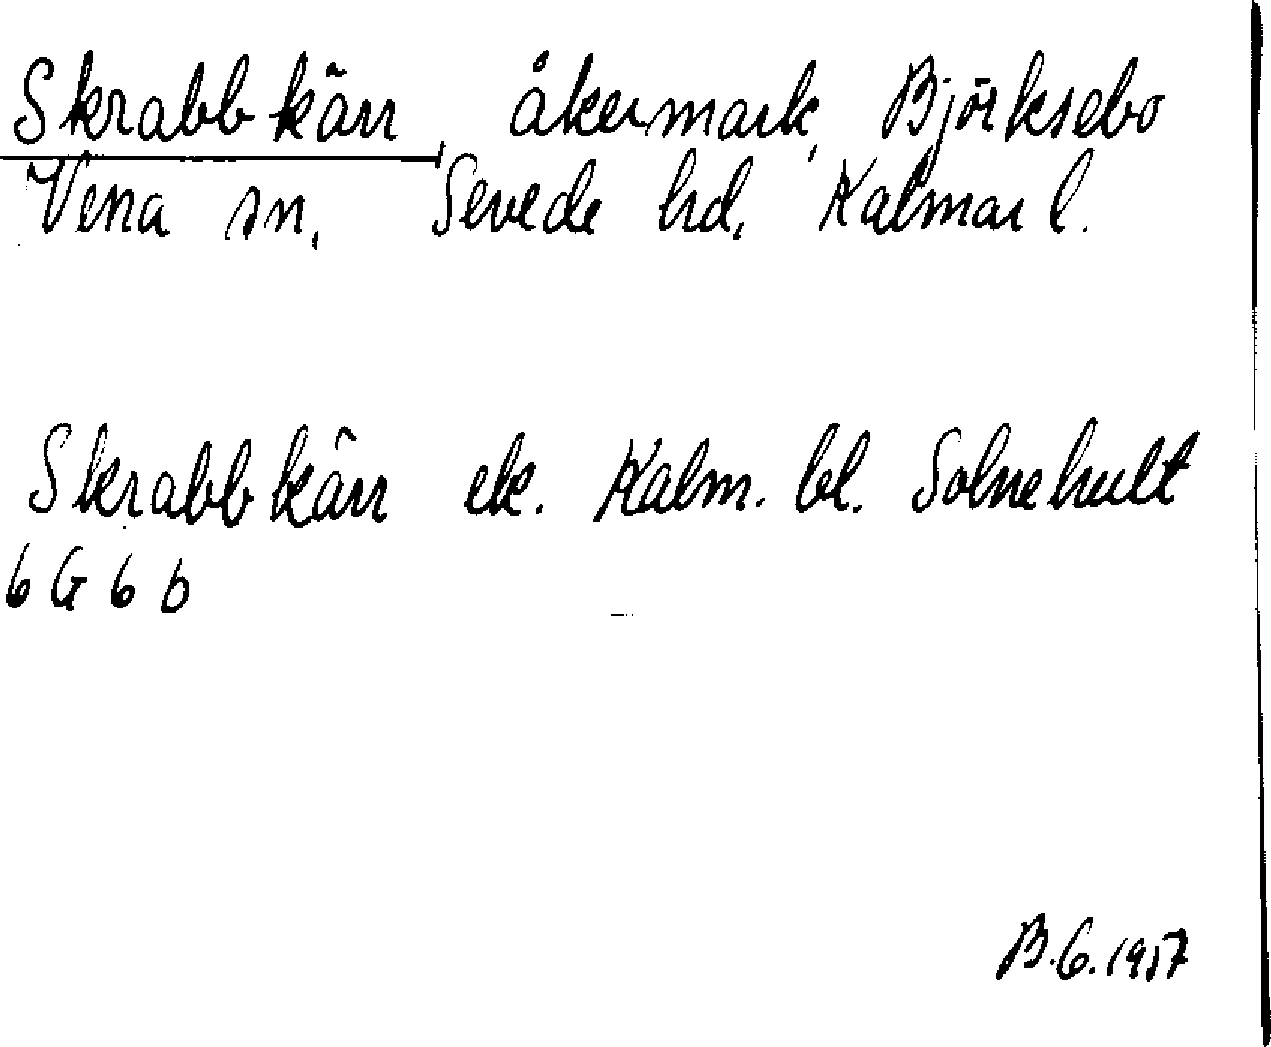 Skrabbkärr, åkermark, Björksebo
Vena sn, Sevede hd, Kalmar l.
Skrabbkärr ek. Kalm. bl. Solnehult
6 G 6 b
B.G. 1957